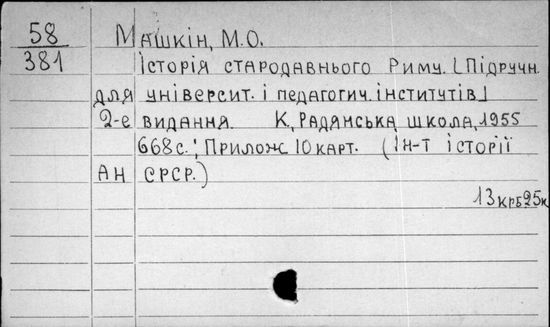 58
381
Машкін, М.О.
Історія стародавнього Риму. [Підручн.
для університ. і педагогич. інститутів]
2-е видання. К, Радянська школа, 1955
668с.; Прилож 10 карт. (Ін-т історії
АН СРСР.)
13 крб 25к